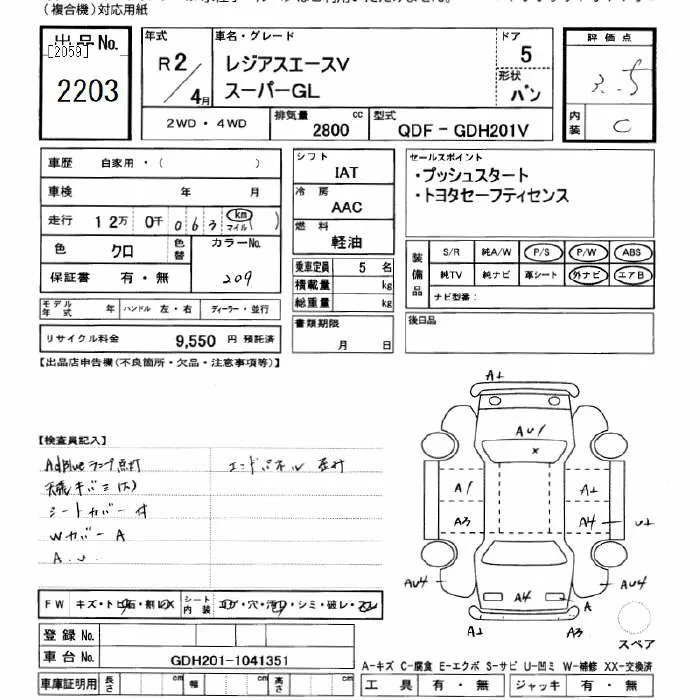 (複合機)対応用紙
出品No.
[2059]
2203
年式
R2/4月
車名・グレード
レジアスエースV
スーパーGL
ドア
5
形状
バン
評価点
3.5
内装
C
2WD・4WD
排気量
2800 cc
型式
QDF-GDH201V
車歴 自家用・( )
車検 年 月
走行 12万 0千 063 km マイル ( )
色 クロ 色替 カラーNo. 209
保証書 有・無
シフト
IAT
冷房
AAC
燃料
軽油
乗車定員 5 名
積載量 kg
総重量 kg
書類期限
月 日
セールスポイント
・プッシュスタート
・トヨタセーフティセンス
装備品
S/R 純A/W P/S P/W ABS
純TV 純ナビ 革シート 外ナビ エアB
ナビ型番:
後日品
モデル年式 年 ハンドル 左・右 ディーラー・並行
リサイクル料金 9,550 円 預託済
【出品店申告欄(不良箇所・欠品・注意事項等)】
【検査員記入】
AdBlueランプ点灯
シートカバー付
Wカバー A
A1
AU1
x
A1 A1
A3 A4
AU4 A4 AU4
A
A1 A3
スペア
FW キズ・トビ石・割レX シート内装 コゲ・穴・汚レ・シミ・破レ・スレ
登録No.
車台No. GDH201-1041351
車庫証明用 長さ cm 幅 cm 高さ cm
A-キズ C-腐食 E-エクボ S-サビ U-凹ミ W-補修 XX-交換済
工具 有・無 ジャッキ 有・無